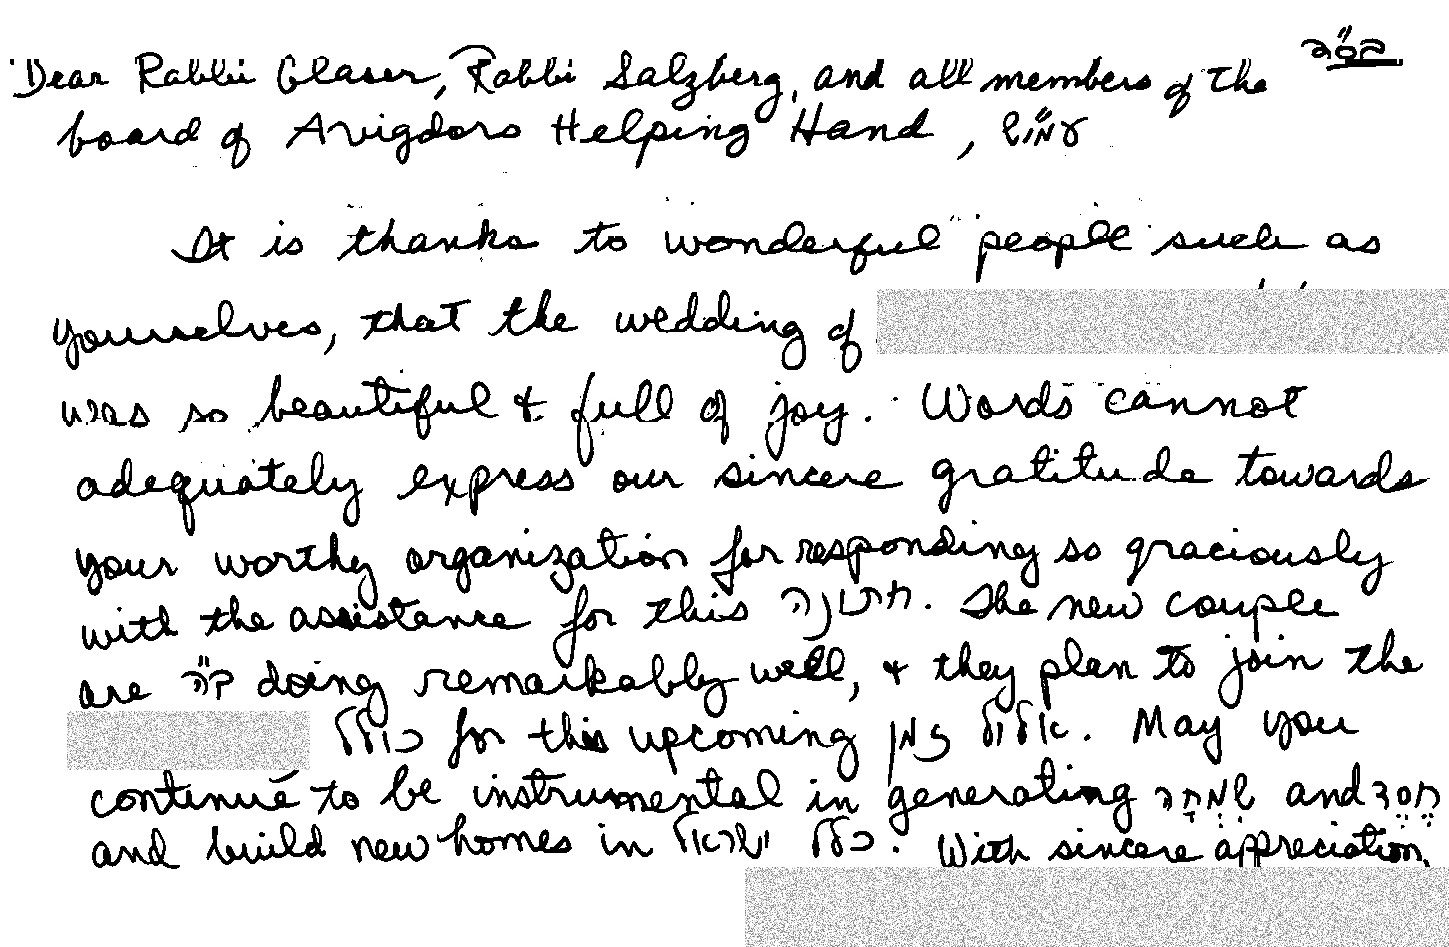 בס״ד
Dear Rabbi Glaser, Rabbi Salzberg, and all members of the
board of Avigdors Helping Hand, עמו״ש
It is thanks to wonderful people such as
yourselves, that the wedding of
was so beautiful & full of joy. Words cannot
adequately express our sincere gratitude towards
your worthy organization for responding so graciously
with the assistance for this חתונה. The new couple
are ב״ה doing remarkably well, & they plan to join the
כולל for this upcoming אלול זמן. May you
continue to be instrumental in generating שִׂמְחָה and חֶסֶד
and build new homes in כלל ישראל. With sincere appreciation,